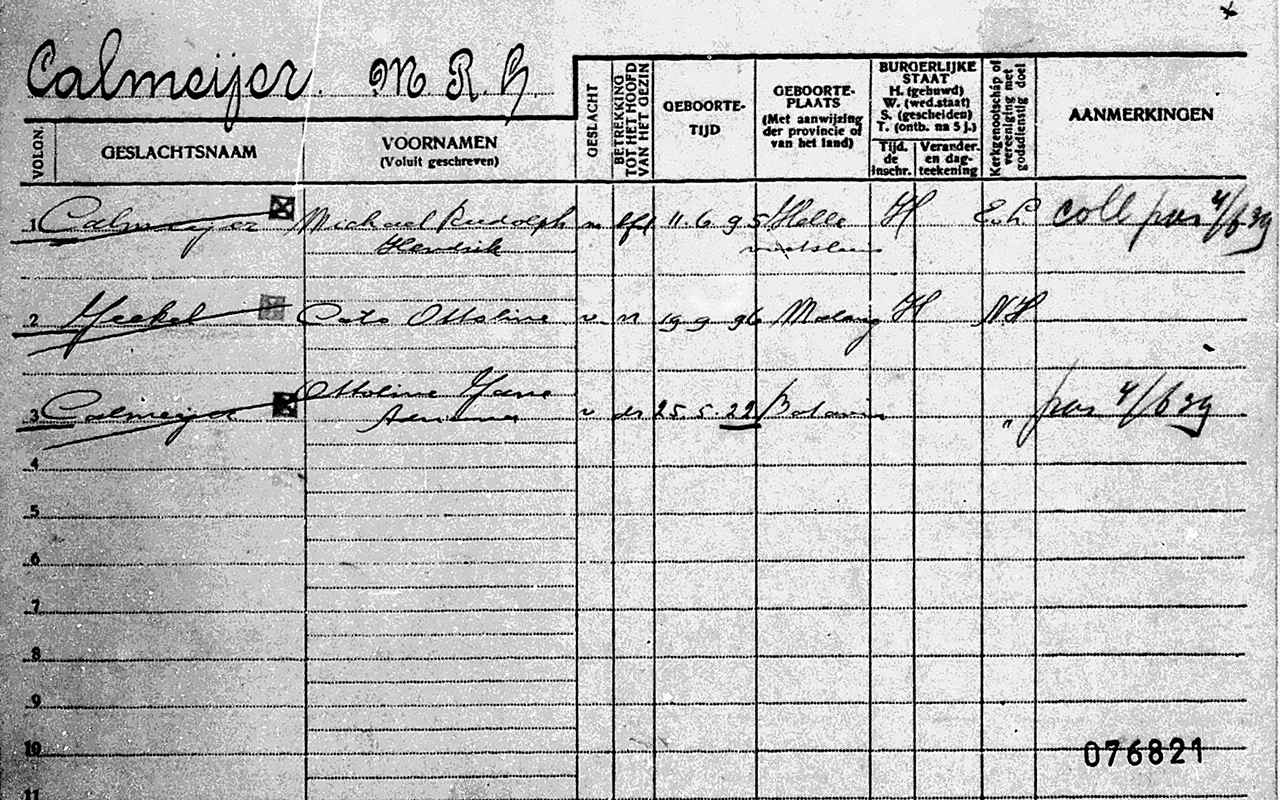 Calmeijer. M R H
VOLGN.
GESLACHTSNAAM
VOORNAMEN
(Voluit geschreven)
GESLACHT
BETREKKING
TOT HET HOOFD
VAN HET GEZIN
GEBOORTE-
TIJD
GEBOORTE-
PLAATS
(Met aanwijzing
der provincie of
van het land)
BURGERLIJKE
STAAT
H. (gehuwd)
W. (wed.staat)
S. (gescheiden)
T. (ontb. na 5 j.)
Tijd.
de
inschr.
Verander.
en dag-
teekening
Kerkgenootschap of
vereeniging met
godsdienstig doel
AANMERKINGEN
1 Calmeijer Michael Rudolph m hfd 11 6 95 H coll pas 4/6 39
Hendrik
2 Coto Ottoline v 19 9 96 Malang H NH
3 Calmeijer Ottoline v 25.5.22 Batavia " pas 4/6 39
4
5
6
7
8
9
10 076821
11